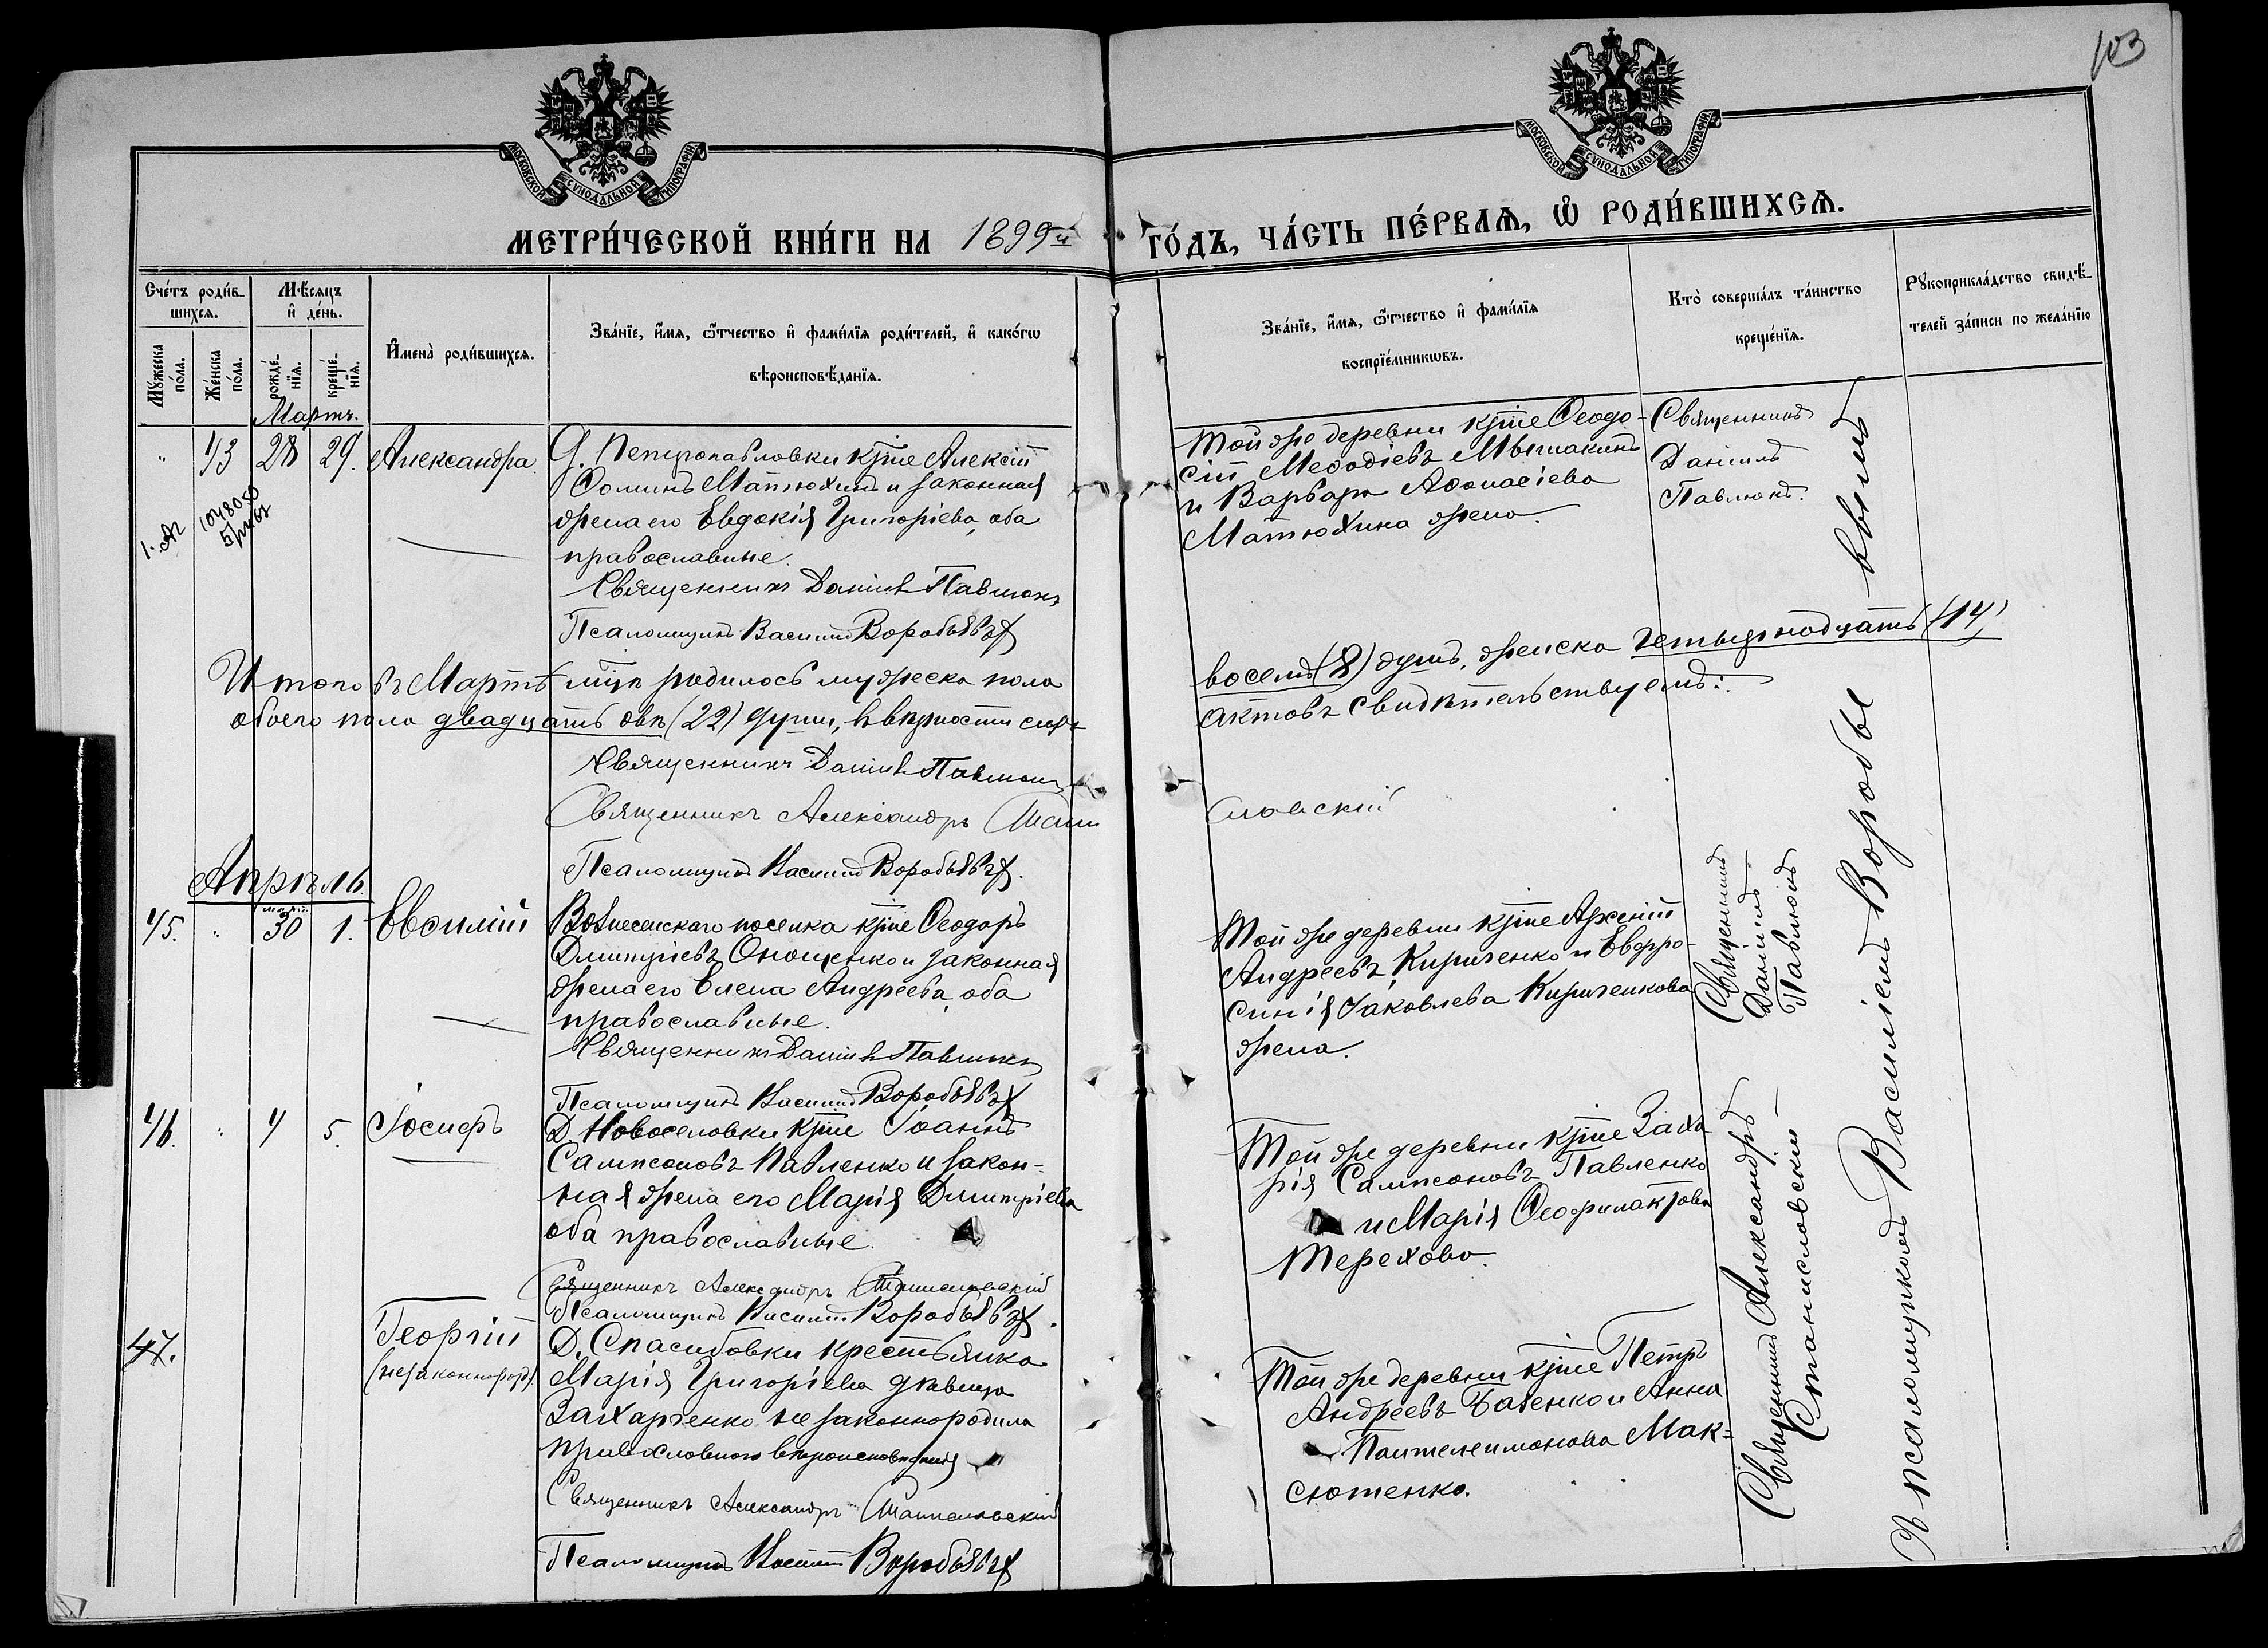 103
МОСКОВСКОЙ СѴНОДАЛЬНОЙ ТИПОГРАФІИ
МОСКОВСКОЙ СѴНОДАЛЬНОЙ ТИПОГРАФІИ
МЕТРИ́ЧЕСКОЙ КНИ́ГИ НА 1899й
ГО́ДЪ, ЧА́СТЬ ПЕ́РВАѦ, Ѡ РОДИ́ВШИХСѦ.
Сче́тъ роди́в-
шихсѧ.
Мꙋ́жеска по́ла.
Же́нска по́ла.
Мѣ́сѧцъ и҆ де́нь.
рожде́-
нїѧ.
креще́-
нїѧ.
И҆мена̀ роди́вшихсѧ.
Зва́нїе, и҆́мѧ, ѻ҆́тчество и҆ фами́лїѧ роди́телей, и҆ како́гѡ
вѣроисповѣ́данїѧ.
Зва́нїе, и҆́мѧ, ѻ҆́тчество и҆ фами́лїѧ
воспрїе́мникѡвъ.
Кто̀ соверша́лъ та́инство
креще́нїѧ.
Рꙋкоприкла́дство свидѣ́-
телей за́писи по жела́нїю
Мартъ.
" 43 28 29. Александра.
Д. Петропавловки кр̃не Алексій
Ѳоминъ Матюхинъ и законная
жена его Евдокія Григоріева, оба
православные.
Священникъ Даніилъ Павлюкъ
Псаломщикъ Василій Воробьевъ
Той же деревни кр̃не Ѳеодо-
сій Меѳодіевъ Мышакинъ
и Варвара Аѳонасіева
Матюхина жена.
Священникъ
Даніилъ
Павлюкъ.
Итого въ Мартѣ мцѣ родилось мужеска пола
восемь (8) душъ, женска четырнадцать (14)
обоего пола двадцать двѣ (22) души, въ вѣрности сихъ
актовъ свидѣтельствуемъ:
Священникъ Даніилъ Павлюкъ
Священникъ Александръ Стани
славскій
Псаломщикъ Василій Воробьевъ.
Апрѣль
март.
45. " 30 1. Евсилій
Вознесенскаго поселка кр̃не Ѳеодоръ
Димитріевъ Онощенко и законная
жена его Елена Андреева, оба
православные.
Священникъ Даніилъ Павлюкъ
Псаломщикъ Василій Воробьевъ
Той же деревни кр̃не Арсеній
Андреевъ Кириченко и Евфро-
синія Іаковлева Кириченкова
жена.
Священникъ
Даніилъ
Павлюкъ
46. " 4 5. Іосифъ
Д. Новоселовки кр̃не Іоаннъ
Сампсоновъ Павленко и закон-
ная жена его Марія Димитріева
оба православные.
Священникъ Александръ Станиславскій
Псаломщикъ Василій Воробьевъ.
Той же деревни кр̃не Заха
рія Сампсоновъ Павленко
и Марія Ѳеофилактова
Терехова.
47. Георгій
(незаконнорожд.)
Д. Спасибовки крестьянка
Марія Григоріева дѣвица
Захарченко незаконнородила
православнаго вѣроисповѣданія
Священникъ Александръ Станиславскій
Псаломщикъ Василій Воробьевъ
Той же деревни кр̃не Петръ
Андреевъ Баценко и Анна
Пантелеимонова Мак-
сютенко.
Священникъ Александръ
Станисловский
Съ псаломщикомъ Василіемъ Воробье
вымъ